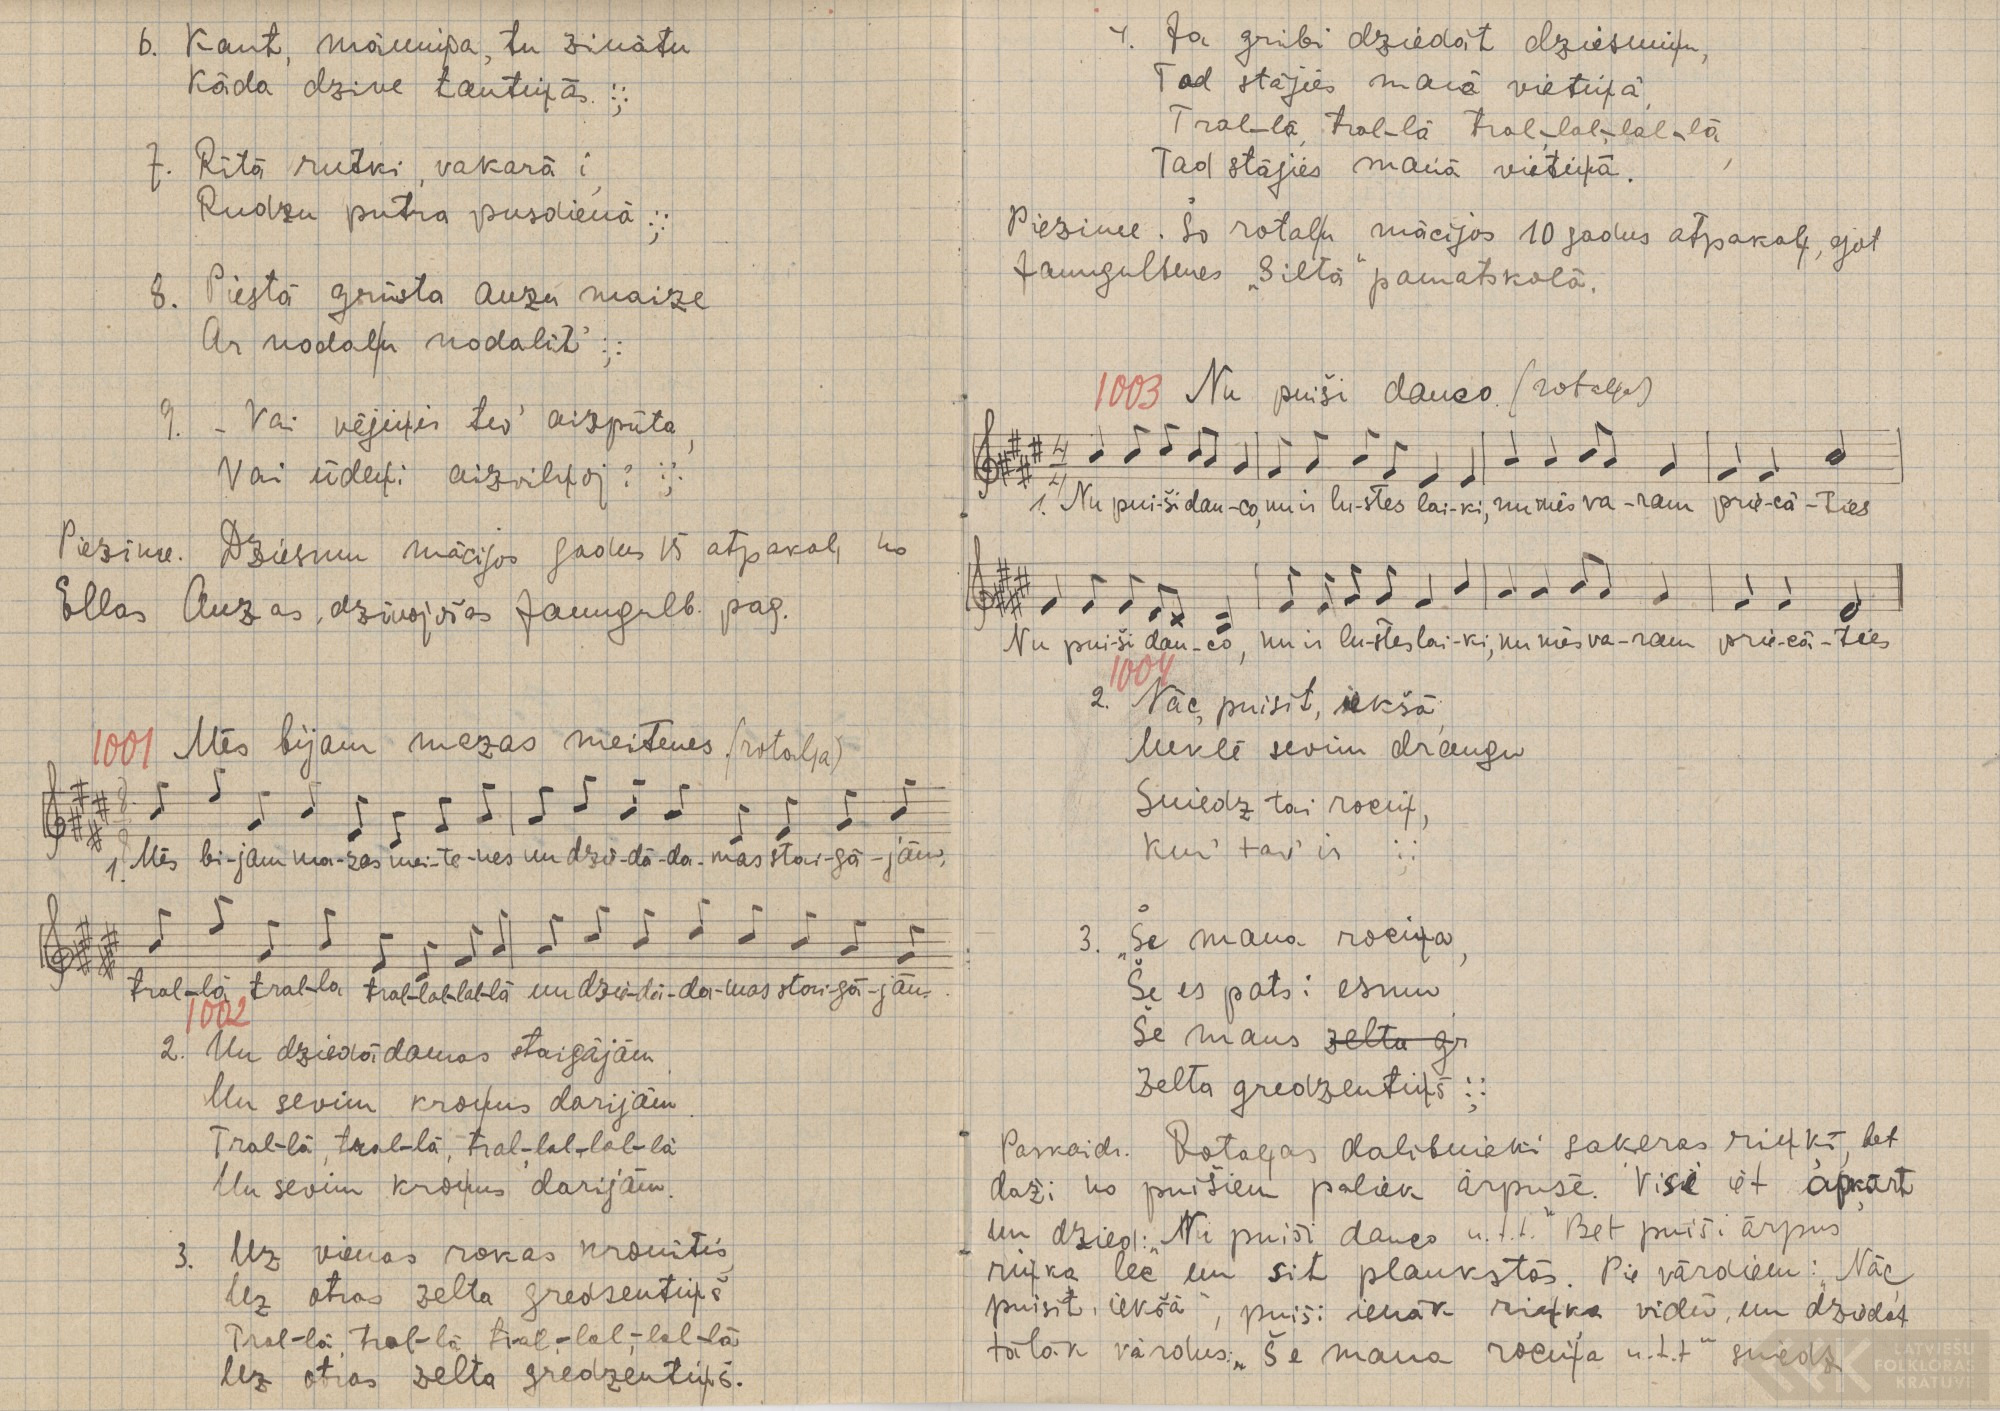 6. Kaut, māmiņa, tu zinātu
Kāda dzive tautiņās. :;:
7. Rītā rutki, vakarā i,
Rudzu putra pusdienā :;:
8. Piestā grūsta auzu maize
Ar nodaļu nodalit' :;:
9. - Vai vējiņis tev' aizpūta,
Vai ūdeņi aizviļņoj? :;:
Piezime. Dziesmu mācijos gadus 15 atpakaļ no
Ellas Auzas, dzīvojošas Jaungulb. pag.
1001 Mēs bijam mazas meitenes. (rotaļa)
1. Mēs bi-jam ma-zas mei-te-nes un dzie-dā-da-mas stai-gā-jām,
tral-lā tral-la tral-lal-lal-lā un dzie-dā-da-mas stai-gā-jām.
1002
2. Un dziedādamas staigājām
Un sevim kroņus darijām.
Tral-lā, tral-lā, tral-lal-lal-lā
Un sevim kroņus darijām.
3. Uz vienas rokas kronitis,
Uz otras zelta gredzentiņš
Tral-lā, tral-lā, tral-lal-lal-lā
Uz otras zelta gredzentiņš.
4. Ja gribi dziedāt dziesmiņu,
Tad stājies manā vietiņā,
Tral-lā, tral-lā tral-lal-lal-lā,
Tad stājies manā vietiņā.
Piezime. Šo rotaļu mācijos 10 gadus atpakaļ, ejot
Jaungulbenes „Siltā“ pamatskolā.
1003 Nu puiši danco. (rotaļa)
1. Nu pui-ši dan-co, nu ir lu-stes lai-ki, nu mēs va-ram prie-cā-ties
Nu pui-ši dan-co, nu ir lu-stes lai-ki, nu mēs va-ram prie-cā-ties
1004
2. Nāc, puisit, iekšā,
Meklē sevim draugu
Sniedz tai rociņ,
Kur' tav' ir :;:
3. „Še mana rociņa,
Še es pats i esmu
Še mans zelta gr
Zelta gredzentiņš :;:
Paskaidr. Rotaļas dalibnieki sakeras riņķī, bet
daži no puišiem paliek ārpusē. Visi iet apkārt
un dzied: „Nu puiši danco u.t.t.“ Bet puiši ārpus
riņķa lec un sit plaukstās. Pie vārdiem: „Nāc,
puisit, iekšā“, puiši ienāk riņķa vidū, un dziedot
tālāk vārdus: „Še mana rociņa u.t.t“ sniedz
LATVIEŠU
FOLKLORAS
KRĀTUVE